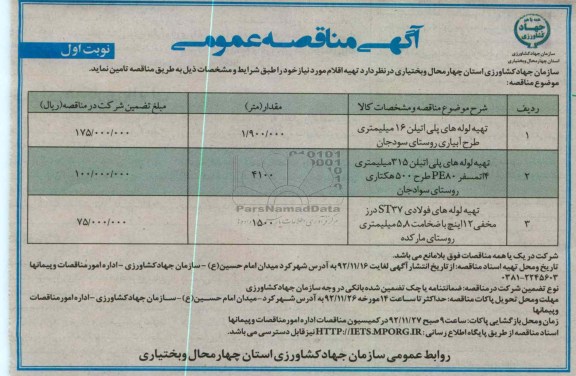 همه با هم
جهاد
کشاورزی
سازمان جهاد کشاورزی
استان چهارمحال وبختیاری
آگهی مناقصه عمومی
نوبت اول
سازمان جهاد کشاورزی استان چهارمحال وبختیاری در نظر دارد تهیه اقلام مورد نیاز خود را طبق شرایط و مشخصات ذیل به طریق مناقصه تامین نماید.
موضوع مناقصه:
ردیف شرح موضوع مناقصه و مشخصات کالا مقدار(متر) مبلغ تضمین شرکت در مناقصه(ریال)
۱ تهیه لوله های پلی اتیلن ۱۶ میلیمتری طرح آبیاری روستای سودجان ۱/۹۰۰/۰۰۰ ۱۷۵/۰۰۰/۰۰۰
۲ تهیه لوله های پلی اتیلن ۳۱۵ میلیمتری ۴ اتمسفر PE۸۰ طرح ۵۰۰ هکتاری روستای سوادجان ۴۱۰۰ ۱۰۰/۰۰۰/۰۰۰
۳ تهیه لوله های فولادی ST۳۷ درز مخفی ۱۲ اینچ با ضخامت ۵٫۸ میلیمتری روستای مارکده ۱۵۰۰ ۷۵/۰۰۰/۰۰۰
ParsNamadData
شرکت در یک یا همه مناقصات فوق بلامانع می باشد.
تاریخ ومحل تهیه اسناد مناقصه: از تاریخ انتشار آگهی لغایت ۹۲/۱۱/۱۶ به آدرس شهرکرد میدان امام حسین(ع) - سازمان جهاد کشاورزی - اداره امور مناقصات وپیمانها
۰۳۸۱-۲۲۴۵۶۰۳
نوع تضمین شرکت در مناقصه: ضمانتنامه یا چک تضمین شده بانکی در وجه سازمان جهاد کشاورزی
مهلت ومحل تحویل پاکات مناقصه: حداکثر تا ساعت ۱۴ مورخه ۹۲/۱۱/۲۶ به آدرس شهرکرد - میدان امام حسین(ع) - سازمان جهاد کشاورزی - اداره امور مناقصات
وپیمانها
زمان ومحل بازگشایی پاکات: ساعت ۹ صبح ۹۲/۱۱/۲۷ در کمیسیون مناقصات اداره امور مناقصات وپیمانها
اسناد مناقصه از طریق پایگاه اطلاع رسانی: HTTP://IETS.MPORG.IR نیز قابل دسترسی می باشد.
روابط عمومی سازمان جهاد کشاورزی استان چهارمحال وبختیاری